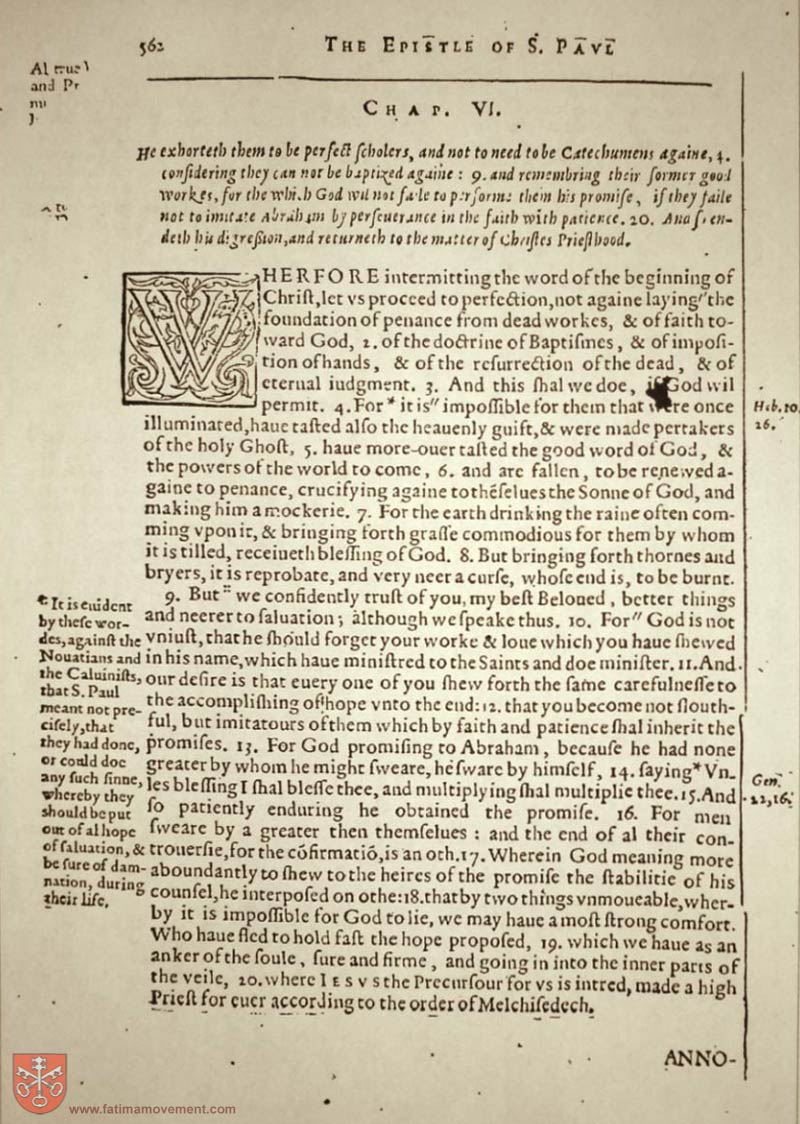 562
THE EPISTLE OF S. PAVL
Al
and
CHAP. VI.
He exhorteth them to be perfect ſcholers, and not to need to be Catechumens againe, 4.
conſidering they can not be baptized againe : 9. and remembring their former good
workes, for the which God wil not faile to performe them his promiſe, if they faile
not to imitate Abraham by perſeuerance in the faith with patience. 20. And ſo en-
deth his digreſsion, and returneth to the matter of Chriſtes Prieſthood.
WHERFORE intermitting the word of the beginning of
Chriſt, let vs proceed to perfection, not againe laying" the
foundation of penance from dead workes, & of faith to-
ward God, 2. of the doctrine of Baptiſmes, & of impoſi-
tion of hands, & of the reſurrection of the dead, & of
eternal iudgment. 3. And this ſhal we doe, if God wil
permit. 4. For * it is" impoſſible for them that were once
Heb. 10.
26.
illuminated, haue taſted alſo the heauenly guift, & were made pertakers
of the holy Ghoſt, 5. haue more-ouer taſted the good word of God, &
the powers of the world to come, 6. and are fallen, to be renewed a-
gaine to penance, crucifying againe to thẽſelues the Sonne of God, and
making him a mockerie. 7. For the earth drinking the raine often com-
ming vpon it, & bringing forth graſſe commodious for them by whom
it is tilled, receiueth bleſſing of God. 8. But bringing forth thornes and
bryers, it is reprobate, and very neer a curſe, whoſe end is, to be burnt.
9. But :: we confidently truſt of you, my beſt Beloued, better things
and neerer to ſaluation ; although we ſpeake thus. 10. For" God is not
vniuſt, that he ſhould forget your worke & loue which you haue ſhewed
in his name, which haue miniſtred to the Saints and doe miniſter. 11. And
our deſire is that euery one of you ſhew forth the ſame carefulneſſe to
the accompliſhing of hope vnto the end: 12. that you become not ſlouth-
ful, but imitatours of them which by faith and patience ſhal inherit the
promiſes. 13. For God promiſing to Abraham, becauſe he had none
greater by whom he might ſweare, he ſware by himſelf, 14. ſaying * Vn-
les bleſſing I ſhal bleſſe thee, and multiplying ſhal multiplie thee. 15. And
ſo patiently enduring he obtained the promiſe. 16. For men
ſweare by a greater then themſelues : and the end of al their con-
trouerſie, for the cõfirmatiõ, is an oth. 17. Wherein God meaning more
aboundantly to ſhew to the heires of the promiſe the ſtabilitie of his
counſel, he interpoſed an othe: 18. that by two things vnmoueable, wher-
by it is impoſſible for God to lie, we may haue a moſt ſtrong comfort.
Who haue fled to hold faſt the hope propoſed, 19. which we haue as an
anker of the ſoule, ſure and firme, and going in into the inner parts of
the veile, 20. where IESVS the Precurſour for vs is intred, made a high
Prieſt for euer according to the order of Melchiſedech.
It is euident
by theſe wor-
des, againſt the
Nouatians and
the Caluiniſts,
that S. Paul
meant not pre-
ciſely, that
they had done,
or could doe
any ſuch ſinne,
whereby they
ſhould be put
out of al hope
of ſaluation, &
be ſure of dam-
nation, during
their life.
Gen.
22, 16.
ANNO-
www.fatimamovement.com